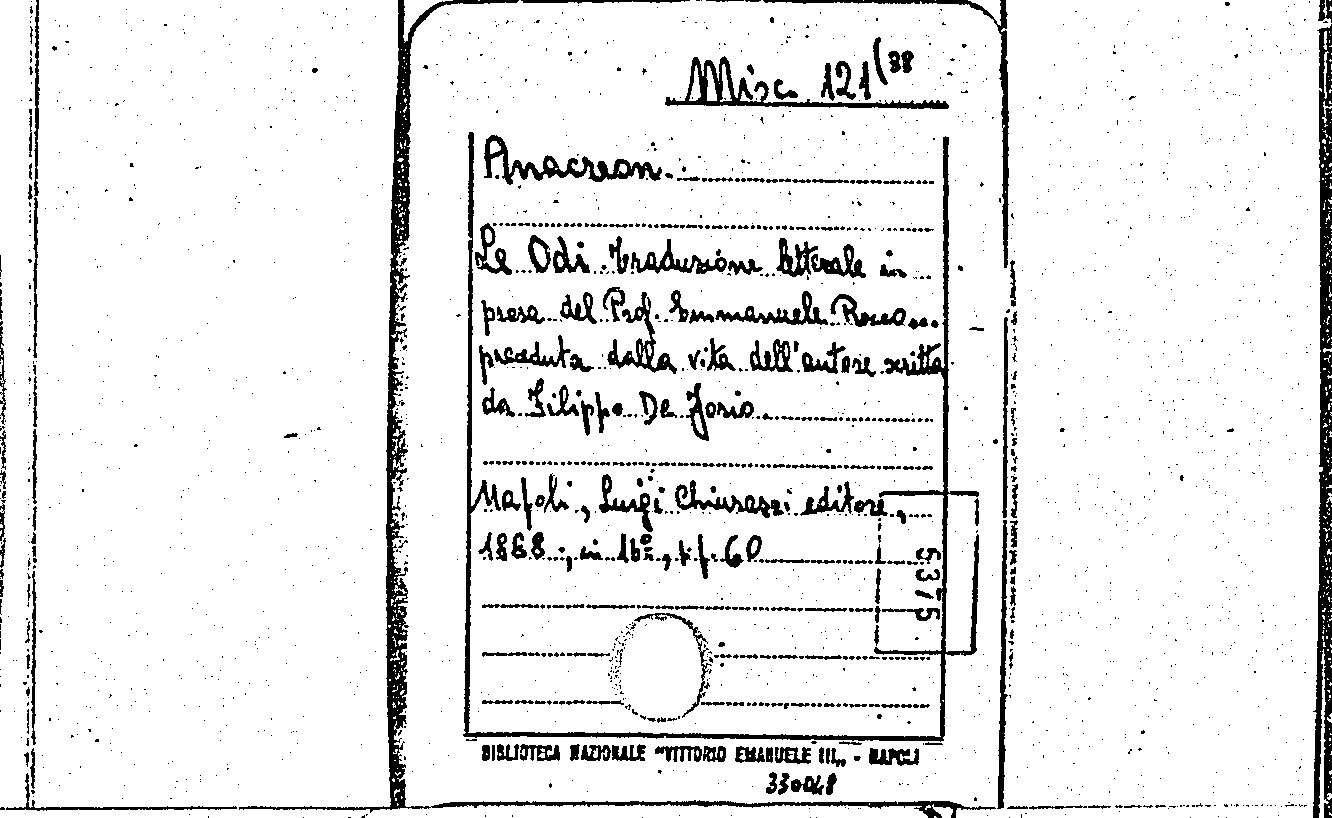 Misc. 121(38
Anacreon.
Le Odi. Traduzione letterale in
prosa del Prof. Emmanuele Rocco...
preceduta dalla vita dell'autore scritta
da Filippo De Jorio.
Napoli, Luigi Chiurazzi editore,
1868., in 16º, pp. 60
5375
BIBLIOTECA NAZIONALE "VITTORIO EMANUELE III„ - NAPOLI
330048